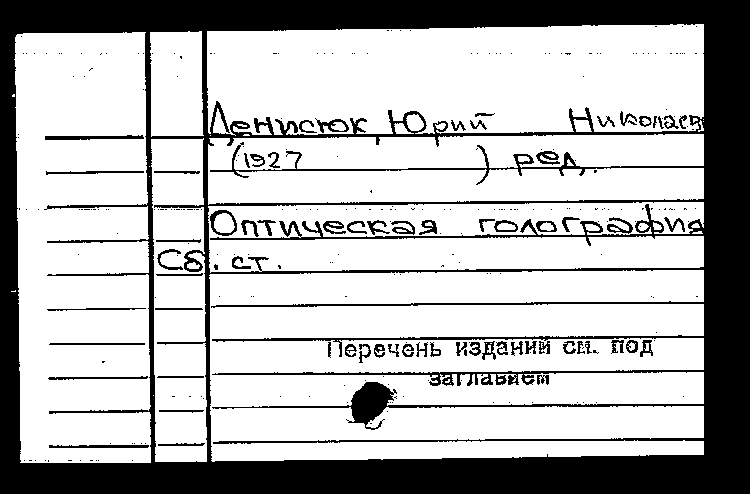 Денисюк, Юрий Николаев
(1927 ) ред.
Оптическая голография
Сб. ст.
Перечень изданий см. под
заглавием